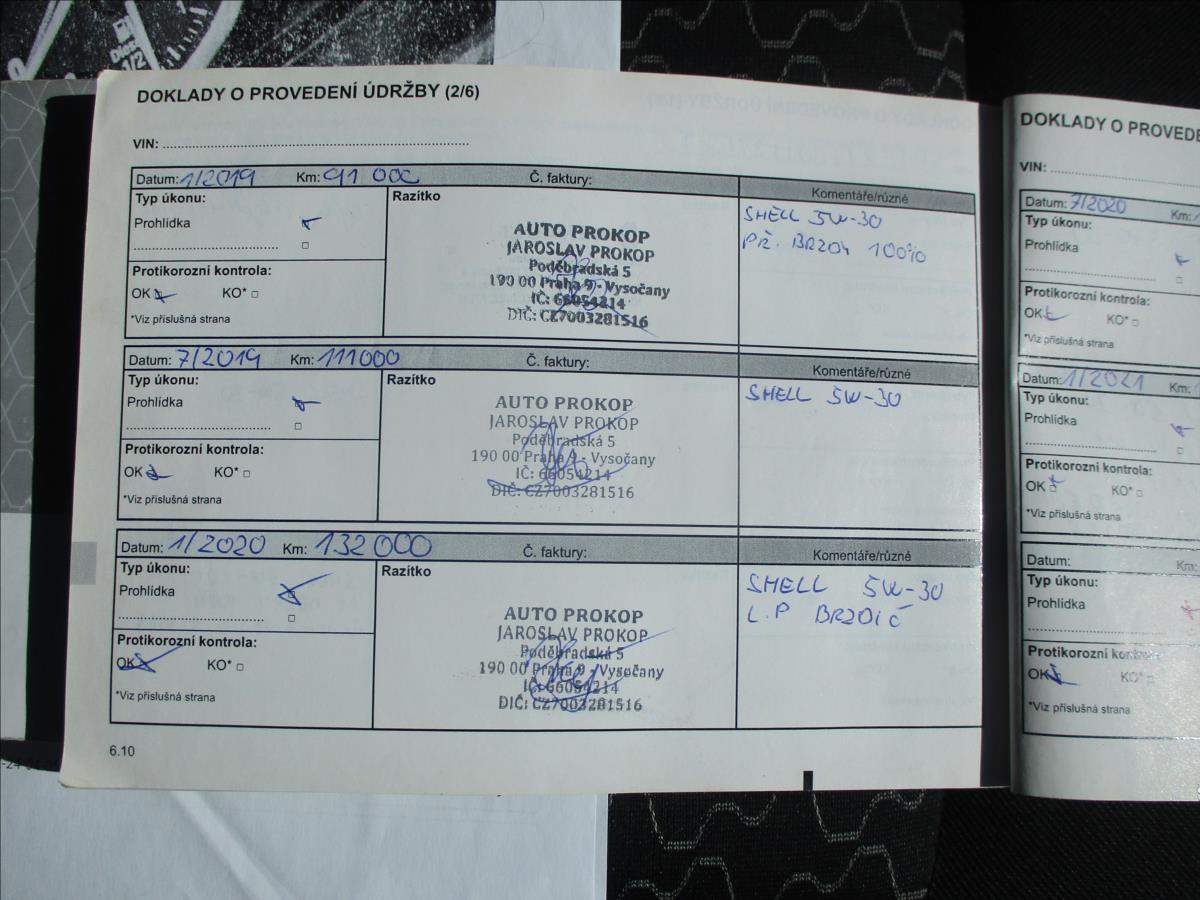 Diesel
1/2
DOKLADY O PROVEDENÍ ÚDRŽBY (2/6)
VIN:
Datum: 1/2019 Km: 91 000 Č. faktury:
Typ úkonu:
Prohlídka
Protikorozní kontrola:
OK KO*
*Viz příslušná strana
Razítko
AUTO PROKOP
JAROSLAV PROKOP
Poděbradská 5
190 00 Praha 9 - Vysočany
IČ: 66054214
DIČ: CZ7003281516
Komentáře/různé
SHELL 5W-30
PŽ. BRZDY 100%
Datum: 7/2019 Km: 111000 Č. faktury:
Typ úkonu:
Prohlídka
Protikorozní kontrola:
OK KO*
*Viz příslušná strana
Razítko
AUTO PROKOP
JAROSLAV PROKOP
Poděbradská 5
190 00 Praha 9 - Vysočany
IČ: 66054214
DIČ: CZ7003281516
Komentáře/různé
SHELL 5W-30
Datum: 1/2020 Km: 132 000 Č. faktury:
Typ úkonu:
Prohlídka
Protikorozní kontrola:
OK KO*
*Viz příslušná strana
Razítko
AUTO PROKOP
JAROSLAV PROKOP
Poděbradská 5
190 00 Praha 9 - Vysočany
IČ: 66054214
DIČ: CZ7003281516
Komentáře/různé
SHELL 5W-30
L.P BRZDIČ
6.10
DOKLADY O PROVEDE
VIN:
Datum: 7/2020 Km:
Typ úkonu:
Prohlídka
Protikorozní kontrola:
OK KO*
*Viz příslušná strana
Datum: 1/2021 Km:
Typ úkonu:
Prohlídka
Protikorozní kontrola:
OK KO*
*Viz příslušná strana
Datum: Km:
Typ úkonu:
Prohlídka
Protikorozní kontrola:
OK KO*
*Viz příslušná strana